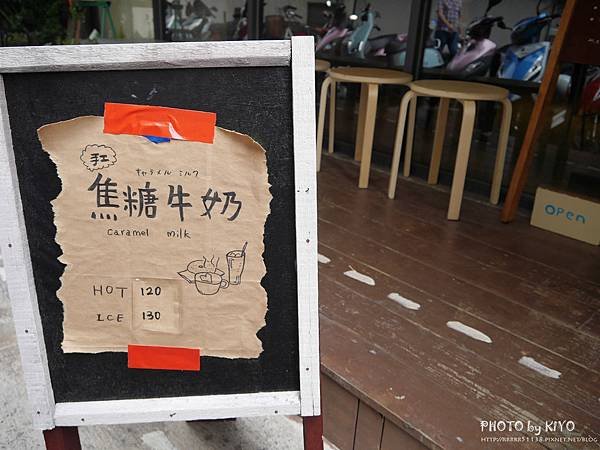 手工
キャラメル ミルク
焦糖牛奶
caramel milk
HOT 120
ICE 130
open
PHOTO by KIYO
HTTP://RRRRR51138.PIXNET.NET/BLOG